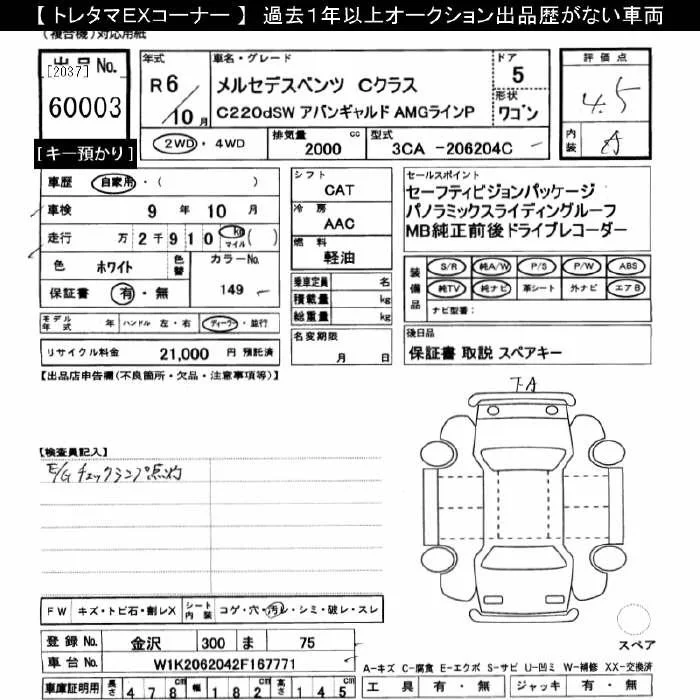 【トレタマEXコーナー】 過去1年以上オークション出品歴がない車両
(複合機)対応用紙
出品No.
[2037]
60003
[キー預かり]
年式
R6/10月
車名・グレード
メルセデスベンツ Cクラス
C220dSW アバンギャルド AMGラインP
ドア
5
形状
ワゴン
2WD・4WD
排気量 cc
2000
型式
3CA -206204C
評価点
4.5
内装
A
車歴 自家用・( )
車検 9年10月
走行 万2千910 kg マイル ( )
色 ホワイト
色替
カラーNo.
149
保証書 有・無
シフト
CAT
冷房
AAC
燃料
軽油
乗車定員 名
積載量 kg
総重量 kg
セールスポイント
セーフティビジョンパッケージ
パノラミックスライディングルーフ
MB純正前後ドライブレコーダー
装備品
S/R 純A/W P/S P/W ABS
純TV 純ナビ 革シート 外ナビ エアB
ナビ型番:
モデル年式 年 ハンドル 左・右 ディーラー・並行
リサイクル料金 21,000 円 預託済
名変期限
月 日
後日品
保証書 取説 スペアキー
【出品店申告欄(不良箇所・欠品・注意事項等)】
【検査員記入】
E/Gチェックランプ点灯
下A
FW キズ・トビ石・割レX
シート内装 コゲ・穴・汚レ・シミ・破レ・スレ
登録No. 金沢 300 ま 75
車台No. W1K2062042F167771
スペア
A-キズ C-腐食 E-エクボ S-サビ U-凹ミ W-補修 XX-交換済
車庫証明用 長さ 478cm 幅 182cm 高さ 145cm
工具 有・無 ジャッキ 有・無